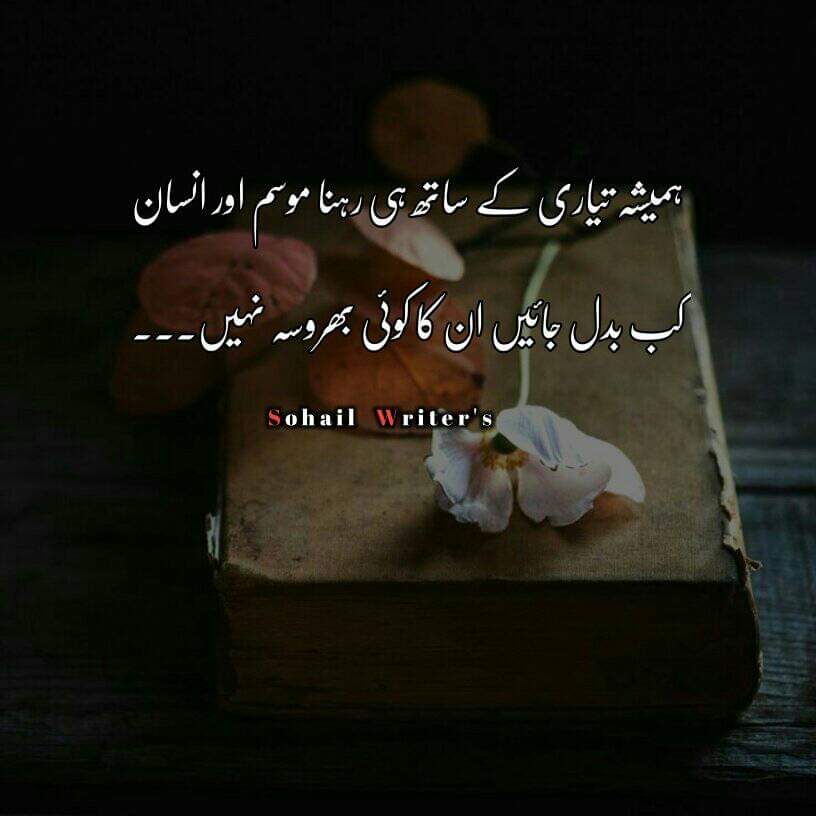 ہمیشہ تیاری کے ساتھ ہی رہنا موسم اور انسان
کب بدل جائیں ان کا کوئی بھروسہ نہیں۔۔۔
Sohail Writer's